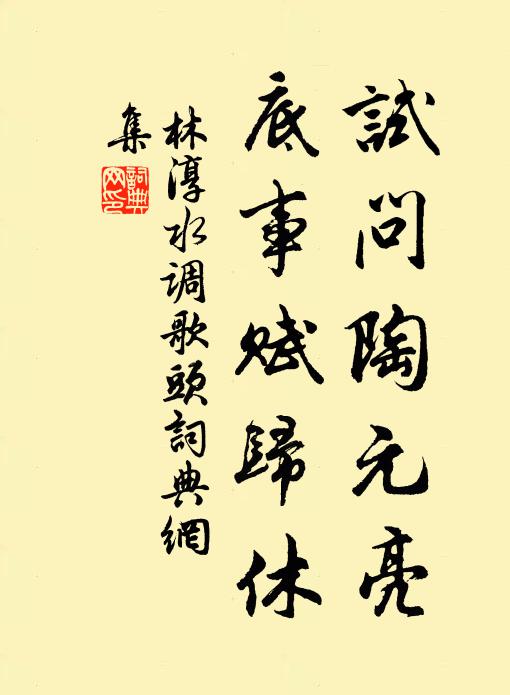 試問陶元亮
底事賦歸休
林淳水调歌頭詞典網
集
詞典
网印